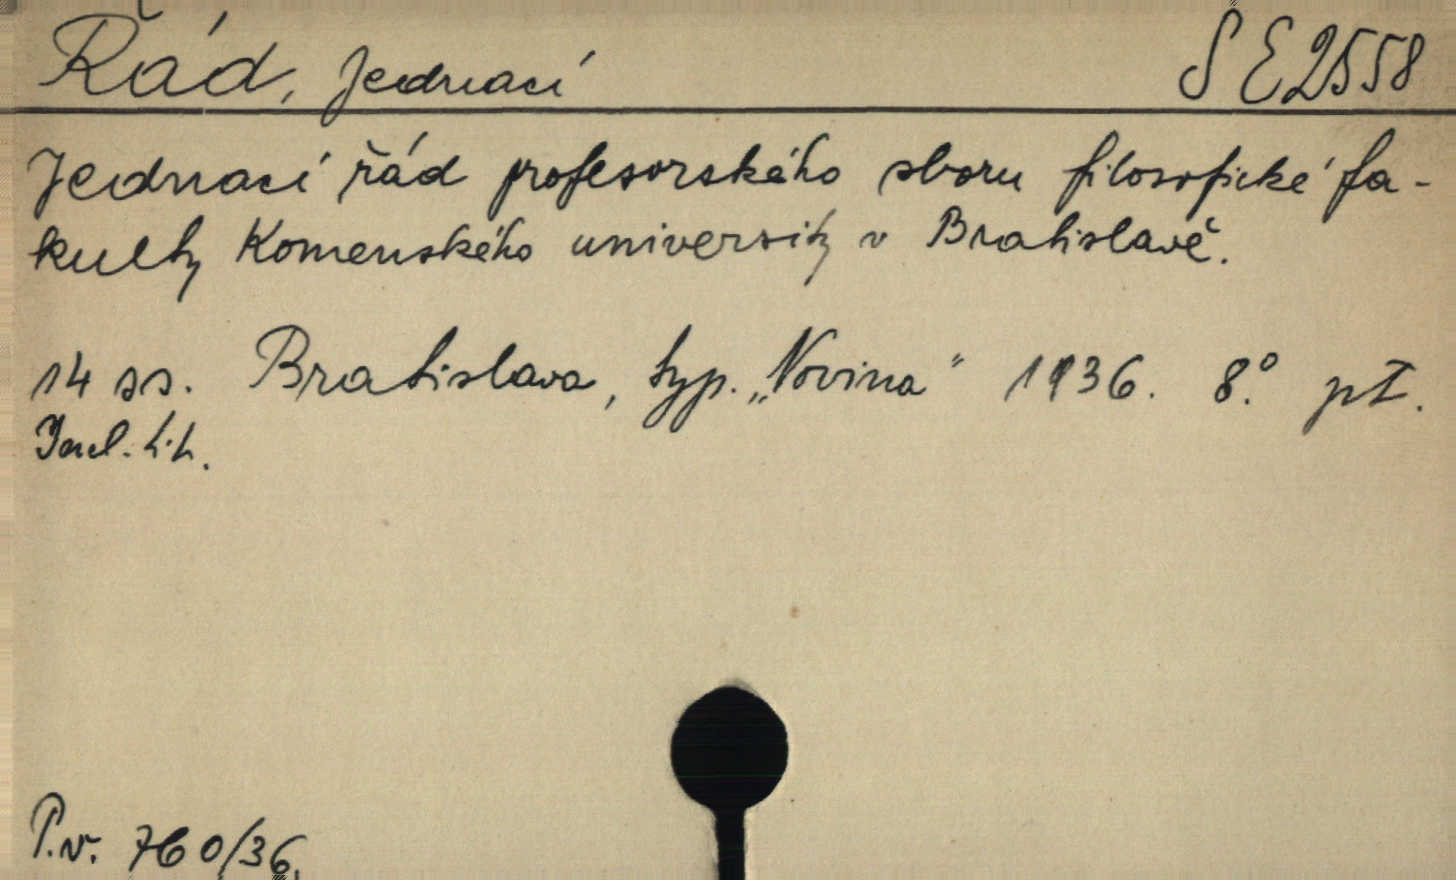 Řád, Jednací S E 2558
Jednací řád profesorského sboru filosofické fa-
kulty Komenského university v Bratislavě.
14 ss. Bratislava, typ. „Novina" 1936. 8.°
P.v. 760/36.